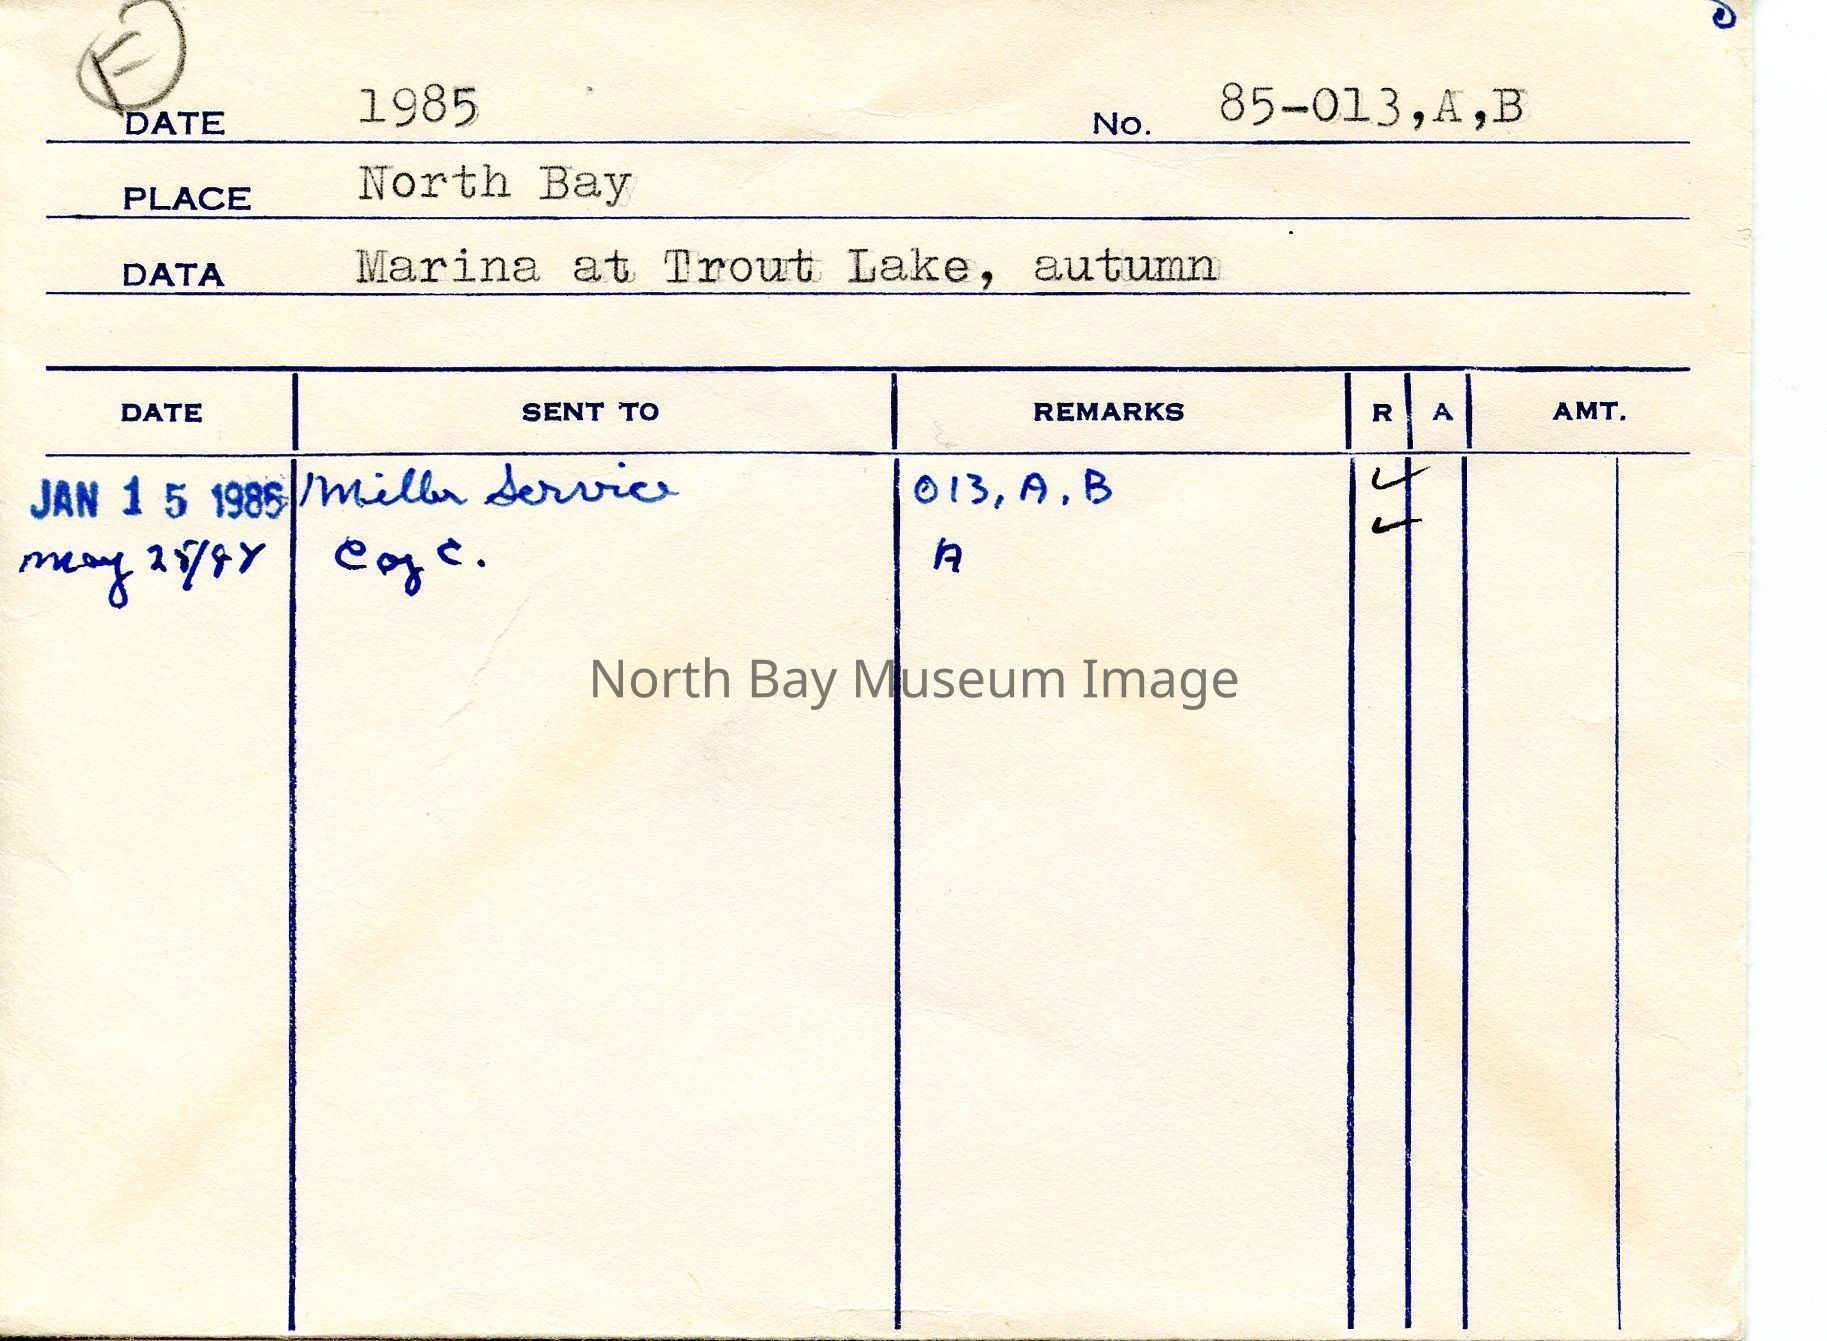 E
DATE 1985 No. 85-013,A,B
PLACE North Bay
DATA Marina at Trout Lake, autumn
DATE SENT TO REMARKS R A AMT.
JAN 15 1986 Miller Service 013, A, B ✓
✓
May C of C. A
North Bay Museum Image